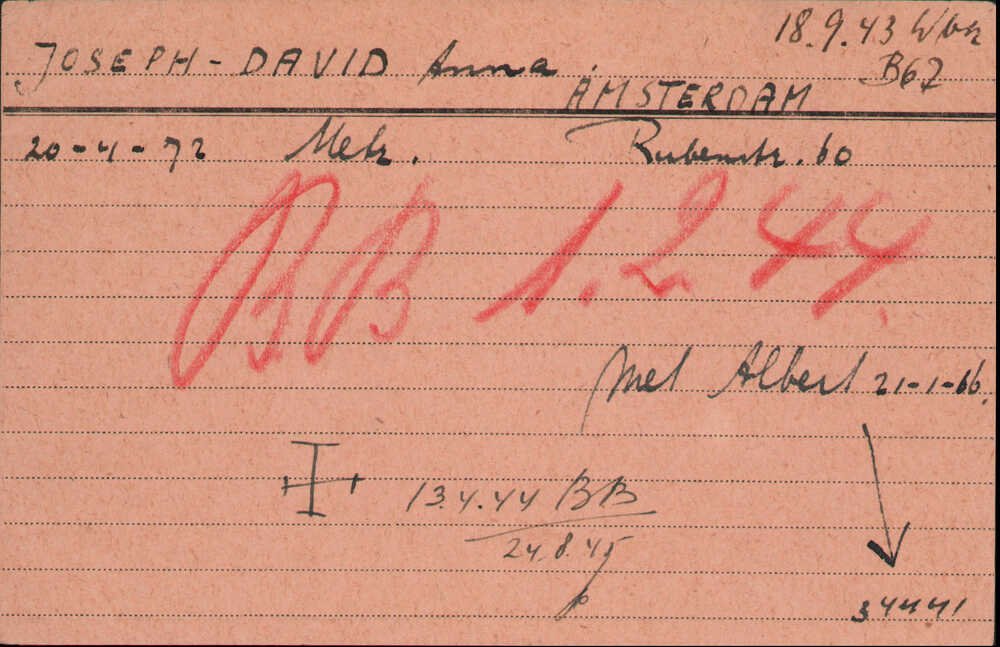 18.9.43 Wbk
JOSEPH - DAVID Anna.
B67
AMSTERDAM
20-4-72 Metz. Rubenstr. 60
BB 1.2.44.
met Albert 21-1-66.
13.4.44 BB
24.8.45
34441